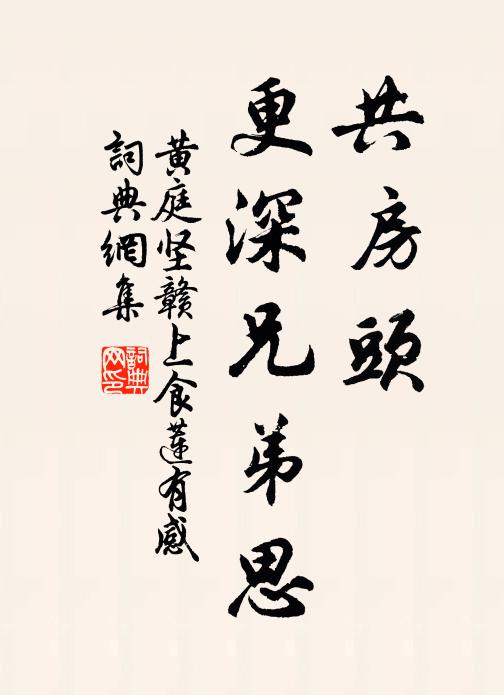 共房頭
更深兄弟思
黄庭坚贛上食蓮有感
詞典網集
詞典網印